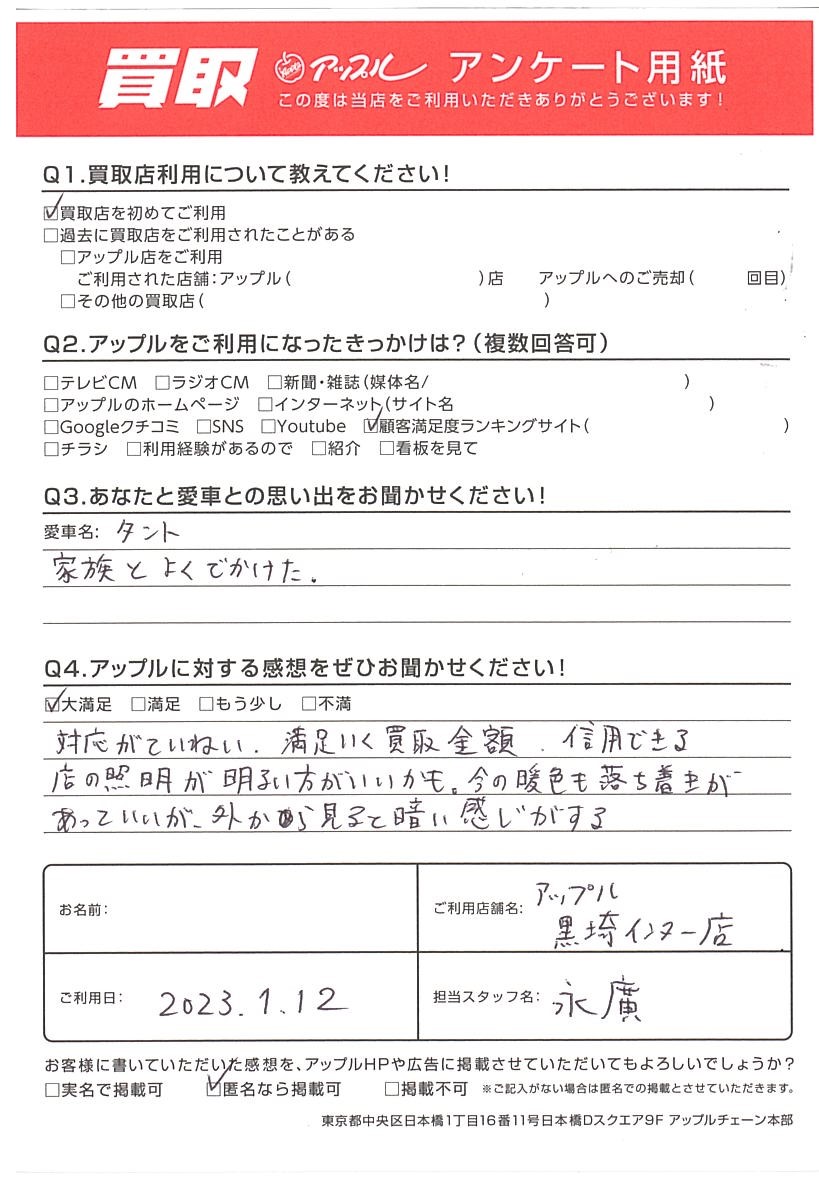 買取 アップル アンケート用紙
この度は当店をご利用いただきありがとうございます!
Q1.買取店利用について教えてください!
☑買取店を初めてご利用
□過去に買取店をご利用されたことがある
□アップル店をご利用
ご利用された店舗:アップル( )店 アップルへのご売却( 回目)
□その他の買取店( )
Q2.アップルをご利用になったきっかけは?(複数回答可)
□テレビCM □ラジオCM □新聞・雑誌(媒体名/ )
□アップルのホームページ □インターネット(サイト名 )
□Googleクチコミ □SNS □Youtube ☑顧客満足度ランキングサイト( )
□チラシ □利用経験があるので □紹介 □看板を見て
Q3.あなたと愛車との思い出をお聞かせください!
愛車名: タント
家族とよくでかけた.
Q4.アップルに対する感想をぜひお聞かせください!
☑大満足 □満足 □もう少し □不満
対応がていねい. 満足いく買取金額. 信用できる
店の照明が明るい方がいいかも。今の暖色も落ち着きが
あっていいが、外から見ると暗い感じがする
お名前:
ご利用店舗名: アップル
黒埼インター店
ご利用日: 2023.1.12
担当スタッフ名: 永廣
お客様に書いていただいた感想を、アップルHPや広告に掲載させていただいてもよろしいでしょうか?
□実名で掲載可 ☑匿名なら掲載可 □掲載不可 ※ご記入がない場合は匿名での掲載とさせていただきます。
東京都中央区日本橋1丁目16番11号日本橋Dスクエア9F アップルチェーン本部